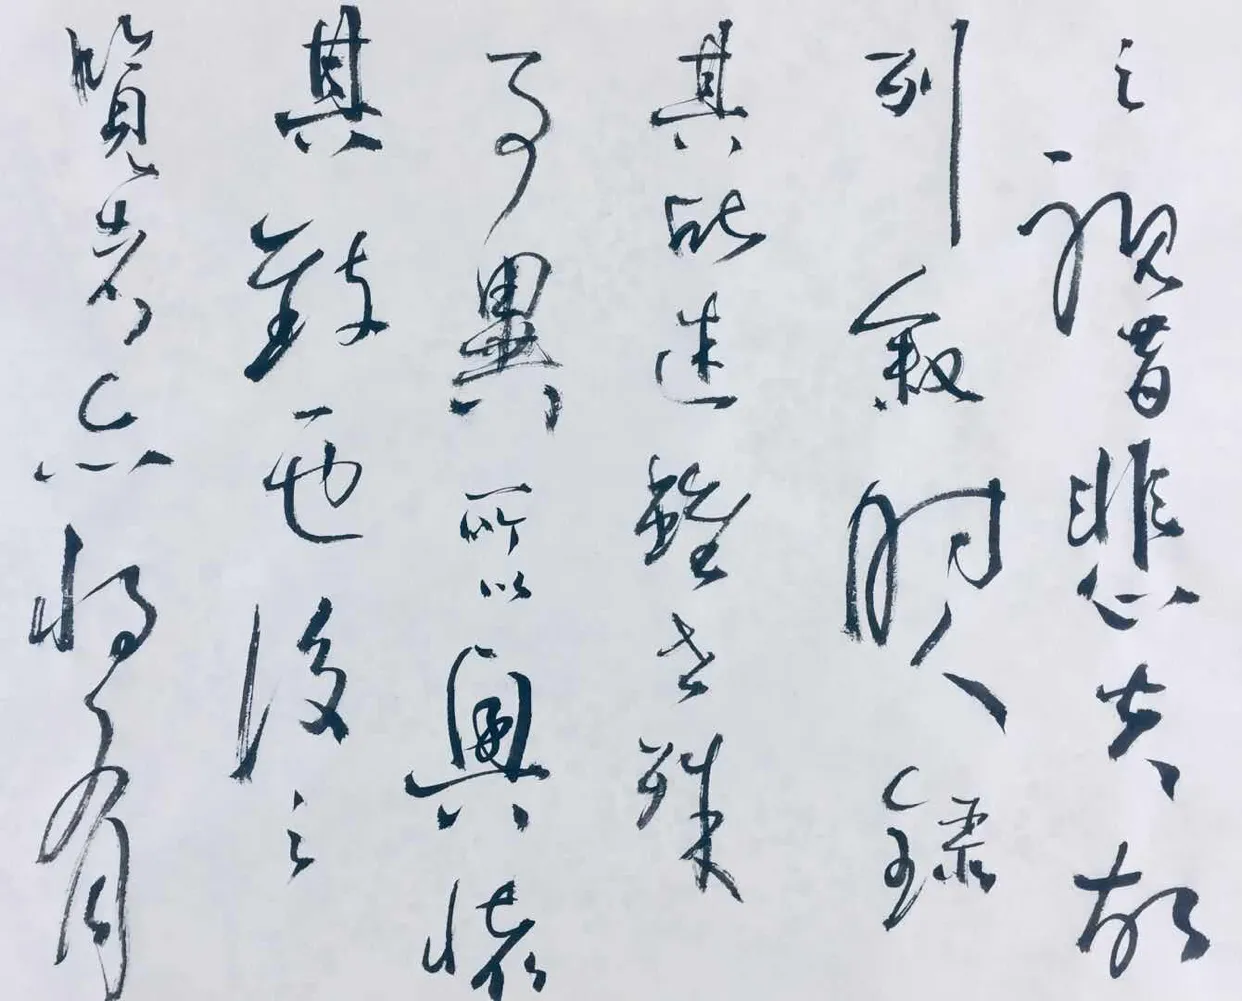 之視昔悲夫故
列叙時人錄
其所述雖世殊
事異所以興懷
其致一也後之
覽者亦將有